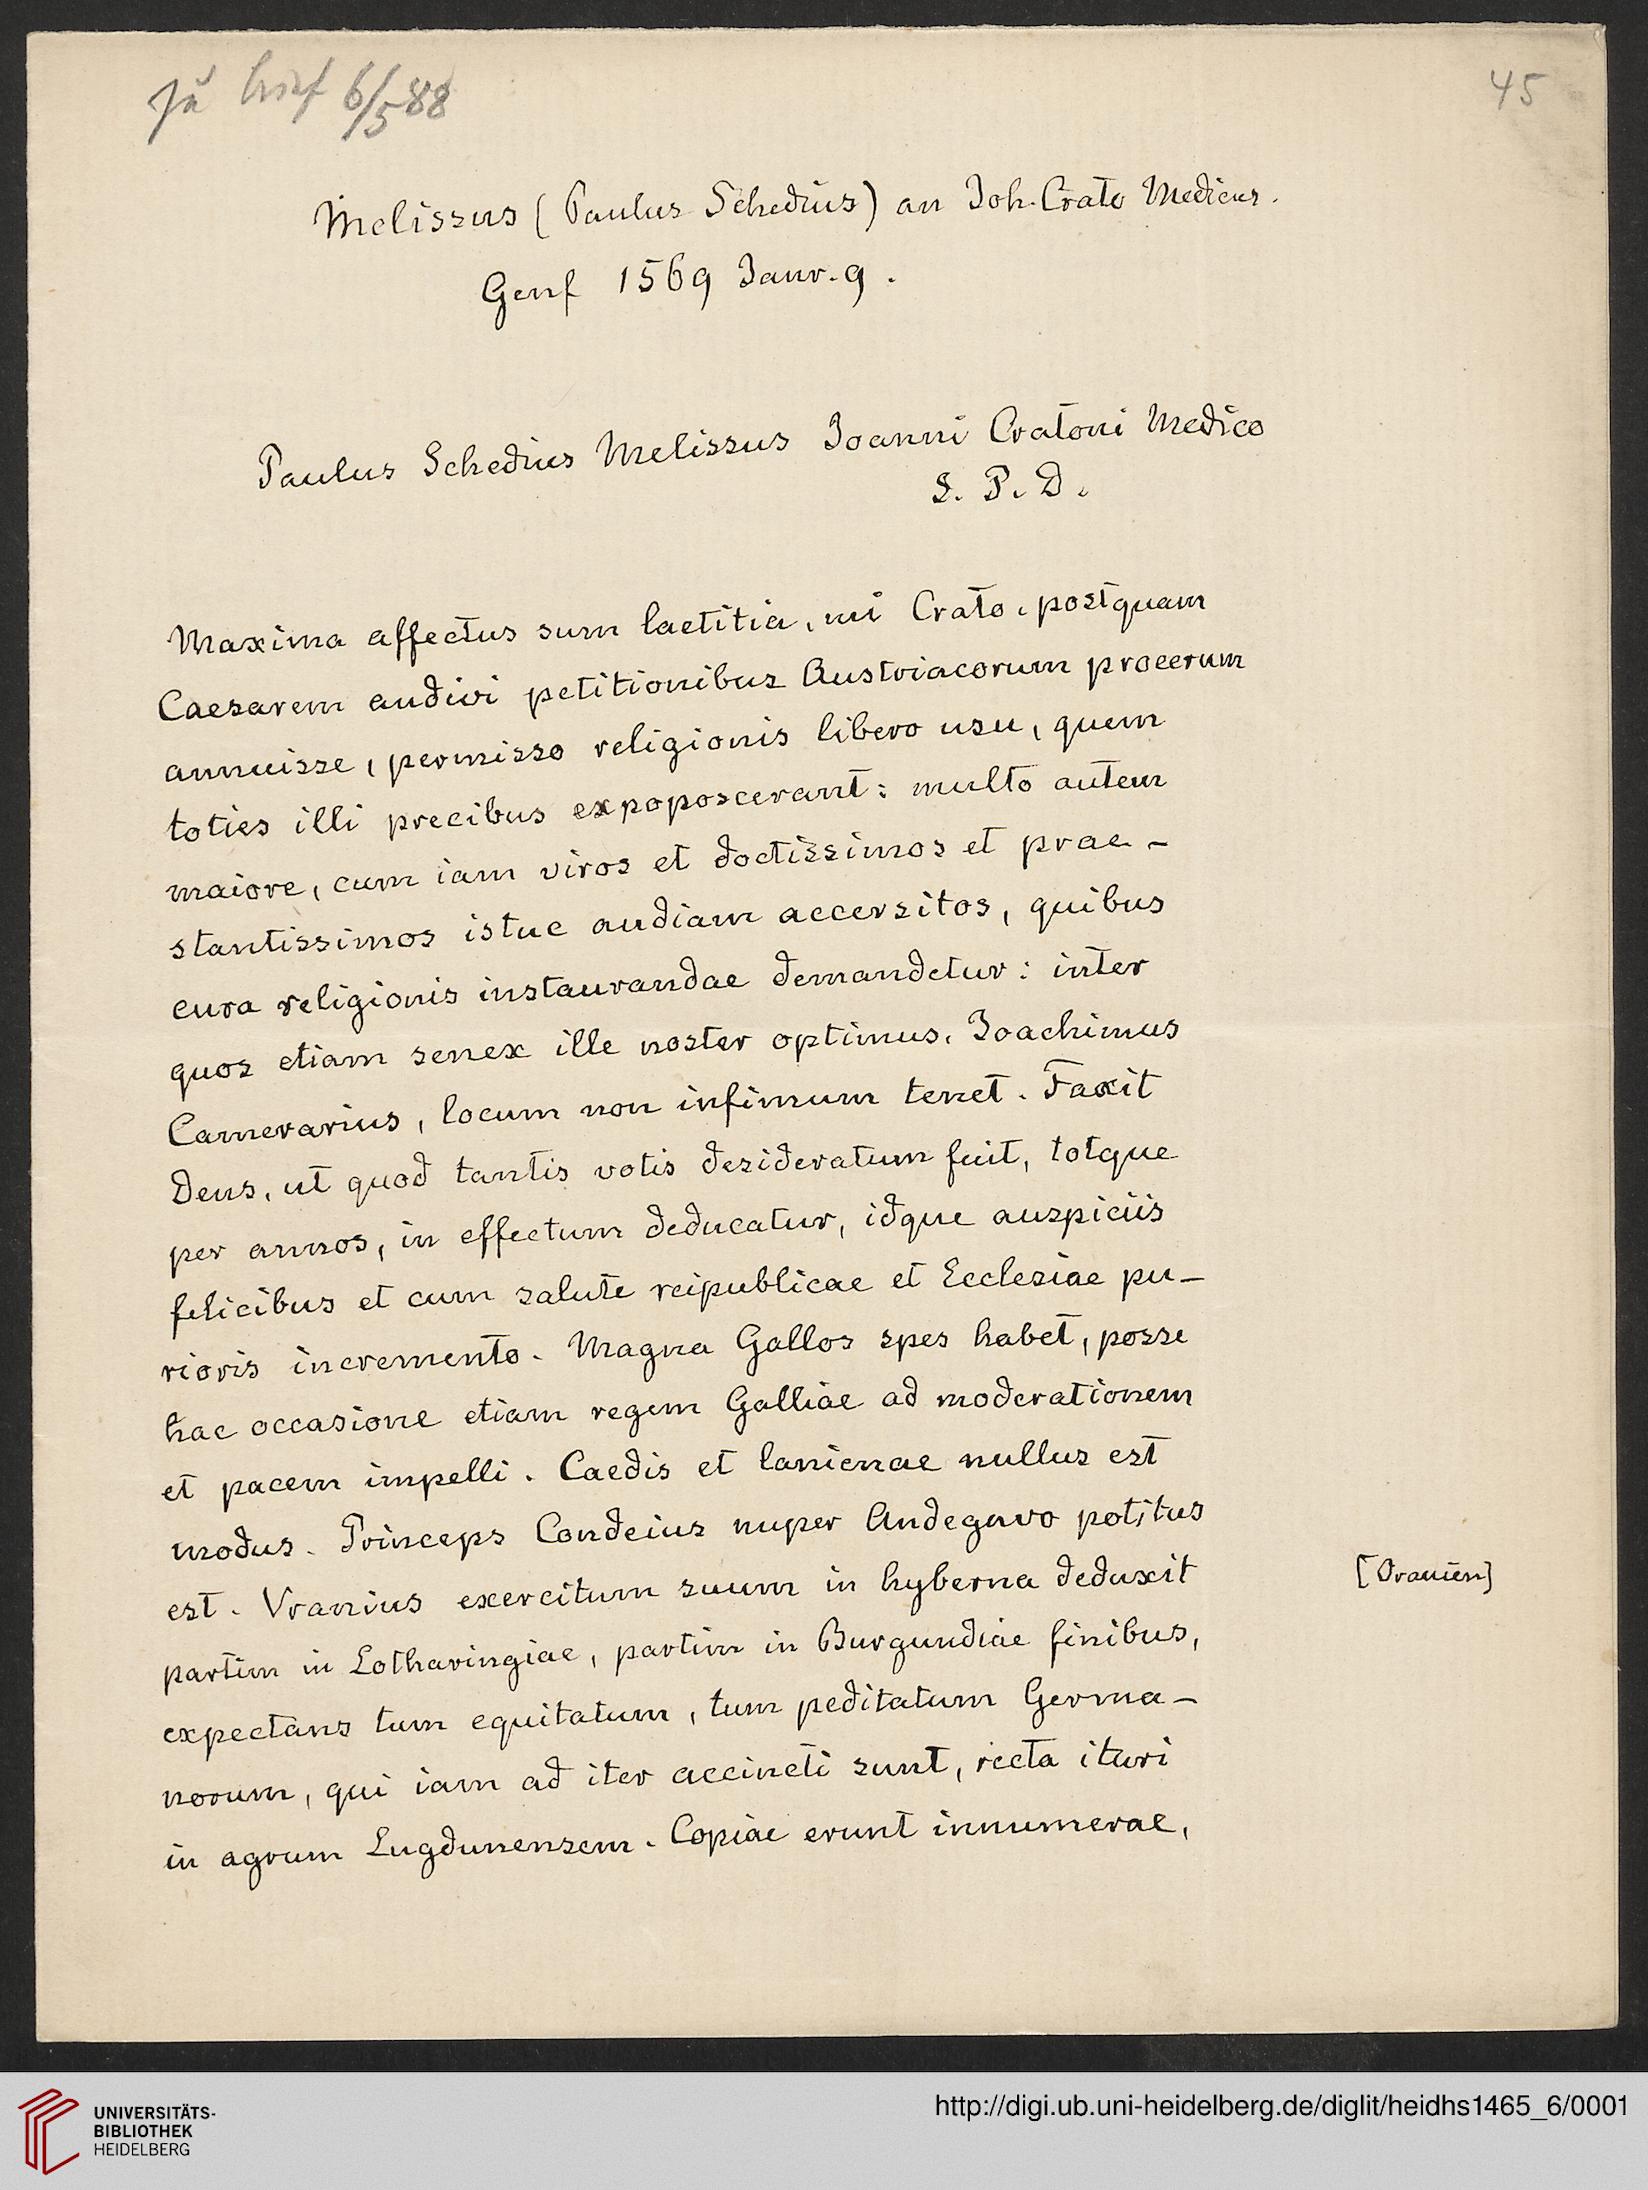 zu Brief 6/5 88
45
Melissus (Paulus Schedius) an Joh. Crato Medicus.
Genf 1569 Janr. 9.
Paulus Schedius Melissus Joanni Cratoni Medico
S. P. D.
Maxima affectus sum laetitia, mi Crato, postquam
Caesarem audivi petitionibus Austriacorum procerum
annuisse, permisso religionis libero usu, quem
toties illi precibus expoposcerant: multo autem
maiore, cum iam viros et doctissimos et prae-
stantissimos istuc audiam accersitos, quibus
cura religionis instaurandae demandetur: inter
quos etiam senex ille noster optimus, Joachimus
Camerarius, locum non infimum tenet. Faxit
Deus, ut quod tantis votis desideratum fuit, totque
per annos, in effectum deducatur, idque auspiciis
felicibus et cum salute reipublicae et Ecclesiae pu-
rioris incremento. Magna Gallos spes habet, posse
hac occasione etiam regem Galliae ad moderationem
et pacem impelli. Caedis et lanienae nullus est
modus. Princeps Condeius nuper Andegavo potitus
est. Vranius exercitum suum in hyberna deduxit
[Oranien]
partim in Lotharingiae, partim in Burgundiae finibus,
expectans tum equitatum, tum peditatum Germa-
norum, qui iam ad iter accincti sunt, recta ituri
in agrum Lugdunensem. Copiae erunt innumerae,
UNIVERSITÄTS-
BIBLIOTHEK
HEIDELBERG
http://digi.ub.uni-heidelberg.de/diglit/heidhs1465_6/0001